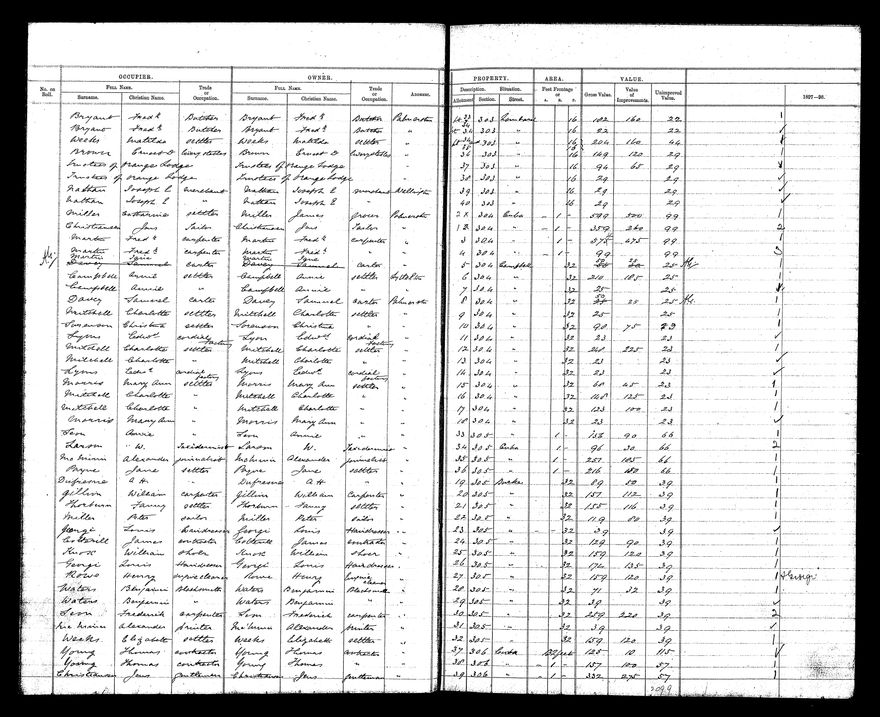 OCCUPIER. OWNER. PROPERTY. AREA. VALUE.
No. on Roll. Full Name. Trade or Occupation. Full Name. Trade or Occupation. Address. Description. Situation. Feet Frontage or Gross Value. Value of Improvements. Unimproved Value. 1897-98.
Surname. Christian Name. Surname. Christian Name. Allotment Section. Street. A. R. P.
Bryant Fredk Butcher Bryant Fredk Butcher Palmerston 303 16 182 160 22
Bryant Fredk Butcher Bryant Fredk Butcher " 34 303 " 16 22 22
Weeks Matilda settler Weeks Matilda settler " 303 " 16 204 160 44
Brown Ernest D Brown Ernest D " 36 303 " 16 149 120 29
Trustees of Orange Lodge Trustees of Orange Lodge 37 303 " 16 94 65 29
Trustees of Orange Lodge Trustees of Orange Lodge 38 303 " 16 29 29
Nathan Joseph E merchant Nathan Joseph E merchant Wellington 39 303 " 16 29 29
Nathan Joseph E " Nathan Joseph E " " 40 303 16 29 29
Miller Catharine settler Miller James grocer Palmerston 304 Cuba - 1 - 599 500 99 1
Christiansen Jens Tailor Christiansen Jens Tailor " 304 " - 1 - 359 260 99 2
Martin Fredk carpenter Martin Fredk carpenter " 3 304 " - 1 - 475 99 1
Martin Fredk " Martin Fredk " " 4 304 " - 1 - 99 99
Davey Samuel carter Davey Samuel carter " 5 304 Campbell 32 25 1
Campbell Annie settler Campbell Annie settler 6 304 " 32 210 185 25 1
Campbell Annie " Campbell Annie " " 7 304 " 32 25 25
Davey Samuel carter Davey Samuel carter Palmerston 8 304 " 32 50 25 25 1
Mitchell Charlotte settler Mitchell Charlotte settler " 9 304 " 32 25 25 1
Sorenson Christina settler Sorenson Christina " " 10 304 " 32 90 75 23 1
Lyons Edwd cordial factory Lyon Edwd cordial factory " 11 304 " 32 23 23
Mitchell Charlotte settler Mitchell Charlotte settler " 12 304 " 32 248 225 23 1
Mitchell Charlotte " Mitchell Charlotte " " 13 304 " 32 23 23
Lyons Edwd cordial factory Lyons Edwd cordial factory " 14 304 " 32 23 23
Morris Mary Ann settler Morris Mary Ann settler " 15 304 " 32 68 45 23 1
Mitchell Charlotte " Mitchell Charlotte " " 16 304 " 32 148 125 23 1
Mitchell Charlotte " Mitchell Charlotte " " 17 304 " 32 123 100 23 1
Morris Mary Ann " Morris Mary Ann " " 18 304 " 32 23 23
Leon Annie " Leon Annie " " 33 305 - 1 - 90 66
Larsom W. Taxidermist Larsom W. Taxidermist " 34 305 Cuba - 1 - 96 30 66 2
McMinn Alexander journalist McMinn Alexander journalist " 35 305 " 1 - 251 185 66 1
Byrne Jane settler Byrne Jane settler " 36 305 " 1 - 216 150 66 1
Dufresne A H " Dufresne A H " " 19 305 32 89 50 39 1
Gillies William carpenter Gillies William Carpenter " 20 305 " 32 151 112 39 1
Thorburn Fanny settler Thorburn Fanny settler " 21 305 " 32 155 116 39 1
Miller Peter sailor Miller Peter sailor " 22 305 " 32 119 80 39 1
Georgi Louis hairdresser Georgi Louis Hairdresser " 23 305 " 32 39 39
Cotterill James contractor Cotterill James contractor " 24 305 " 32 129 90 39 1
Knox William Knox William " 25 305 " 32 159 120 39 1
Georgi Louis Hairdresser Georgi Louis Hairdresser " 26 305 " 32 174 135 39 1
Rowe Henry engine cleaner Rowe Henry Engine cleaner " 27 305 " 32 159 120 39 1 Georgi
Waters Benjamin Blacksmith Waters Benjamin Blacksmith " 28 305 " 32 71 32 39 1
Waters Benjamin Waters Benjamin " 29 305 " 32 39 39
Leon Frederick carpenter Leon Frederick carpenter " 30 305 " 32 259 220 39 2
McMinn Alexander printer McMinn Alexander printer " 31 305 " 32 39 39 1
Weeks Elizabeth settler Weeks Elizabeth settler " 32 305 " 32 159 120 39 1
Young Thomas contractor Young Thomas contractor " 37 306 Cuba 125 10 115
Young Thomas contractor Young Thomas " " 38 306 " - 1 - 157 100 57 1
Christiansen Jens gentleman Christiansen Jens gentleman " 39 306 " - 1 - 332 275 57 1
2099